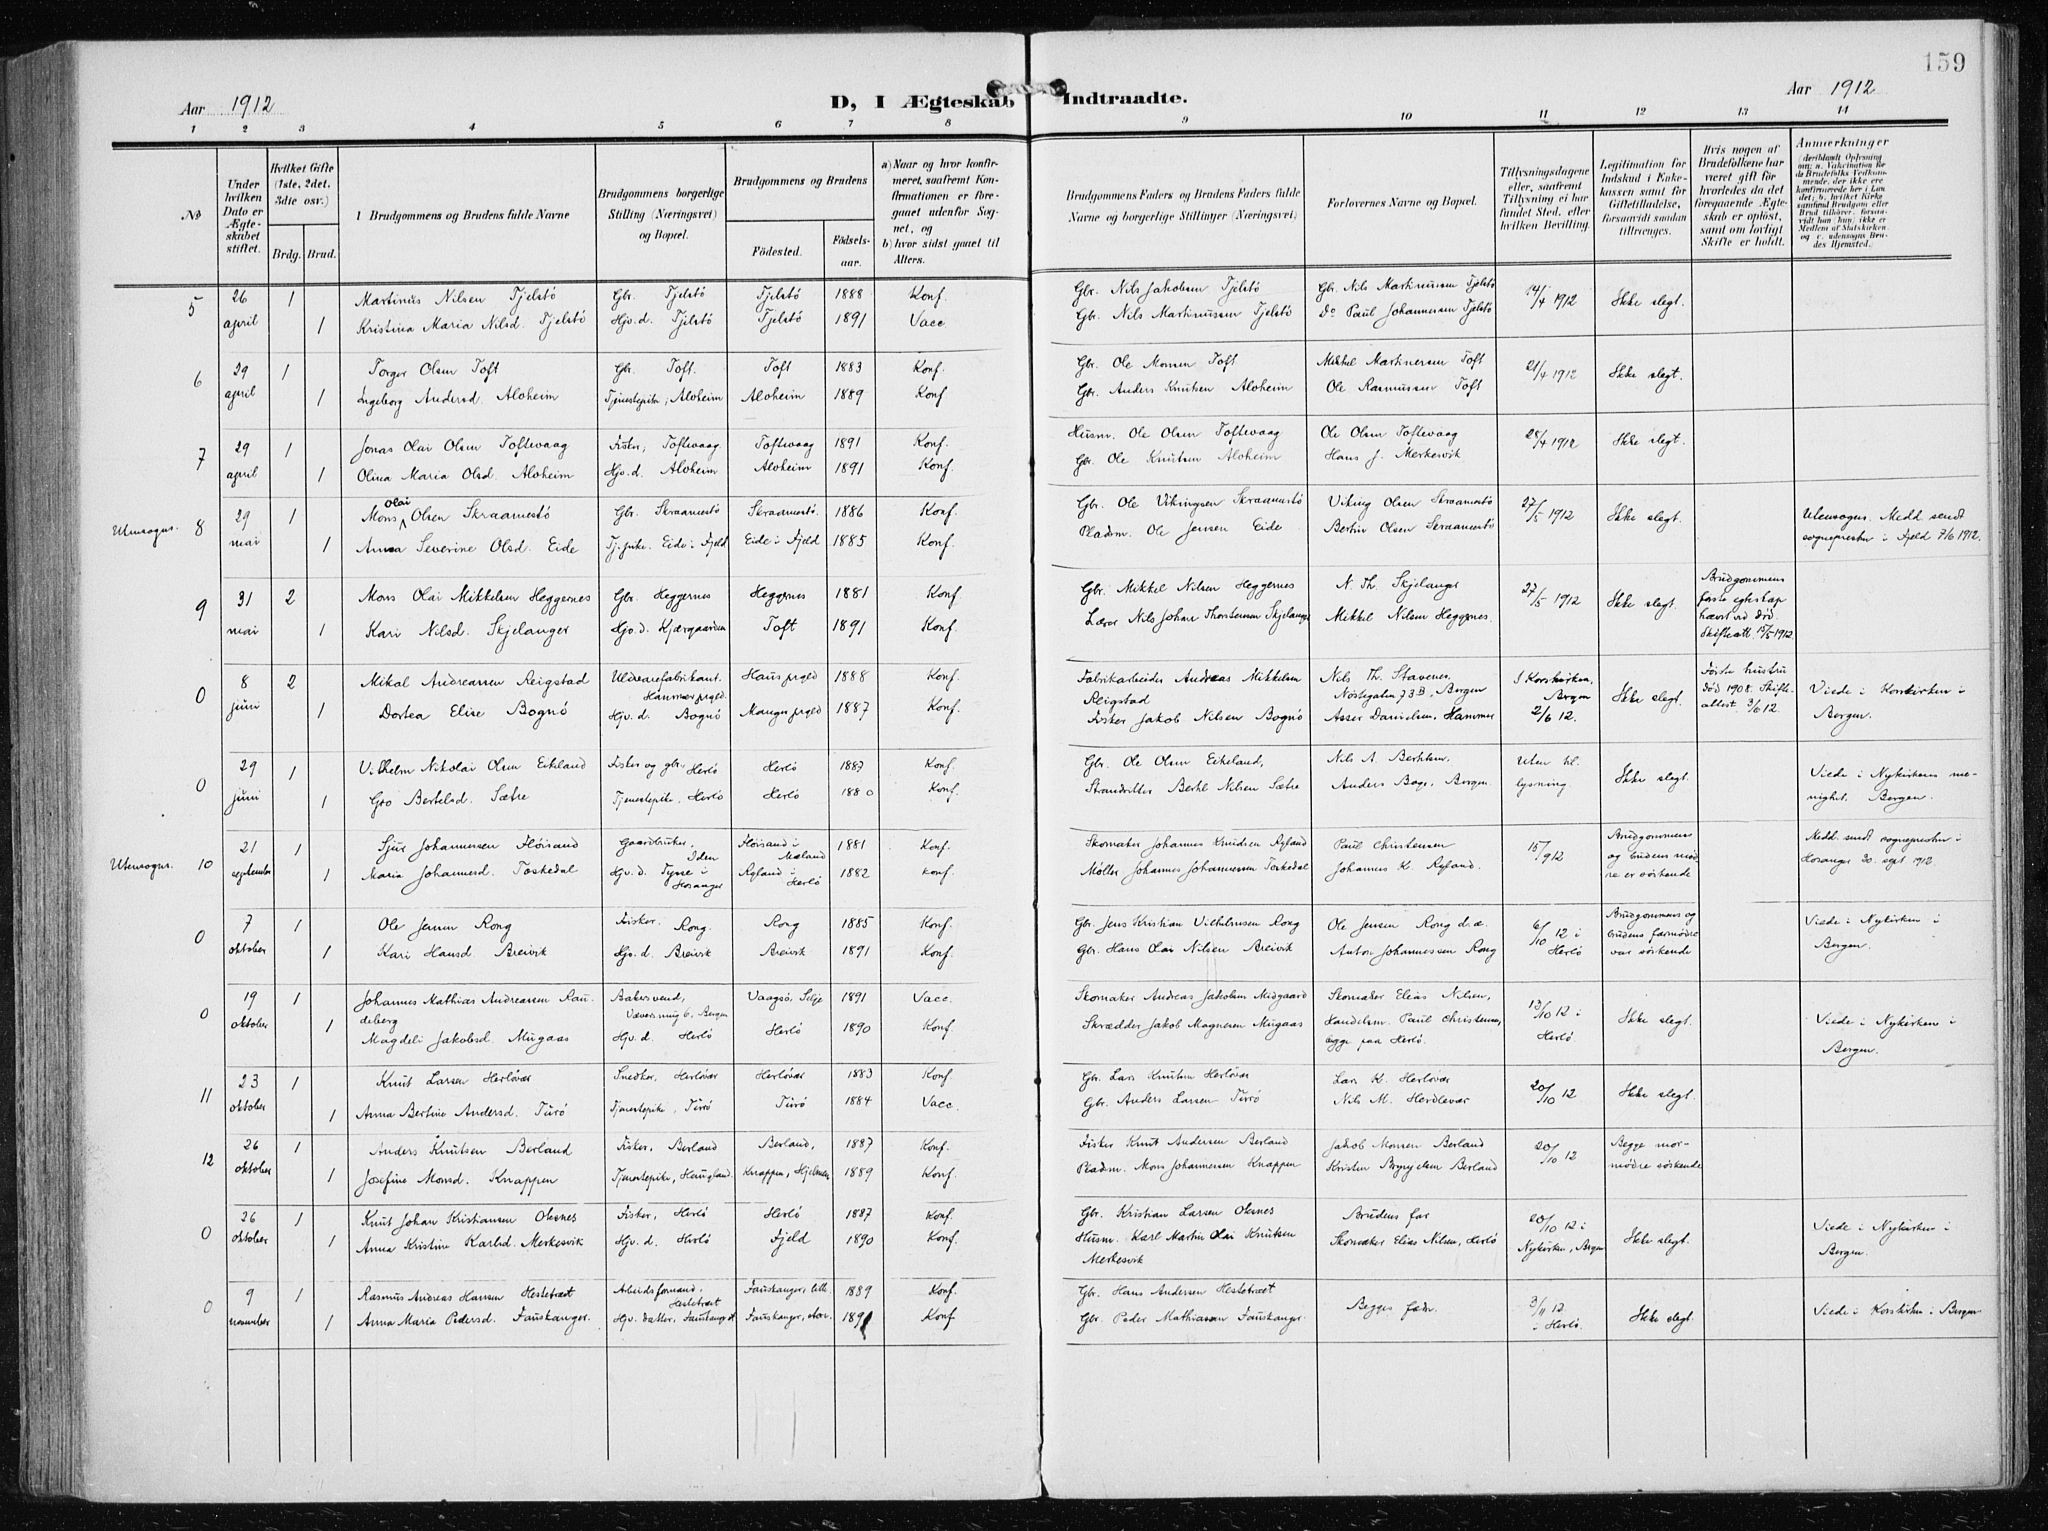 159
Aar 1912
D, I Ægteskab Indtraadte.
Aar 1912
1 2 3 4 5 6 7 8 9 10 11 12 13 14
No
Under hvilken Dato er Ægteskabet stiftet.
Hvilket Gifte (1ste, 2det, 3die osv.)
Brdg. Brud.
Brudgommens og Brudens fulde Navne
Brudgommens borgerlige Stilling (Næringsvei) og Bopæl.
Brudgommens og Brudens
Födested. Födselsaar.
a) Naar og hvor konfirmeret, saafremt Konfirmationen er foregaaet udenfor Sognet, og
b) hvor sidst gaaet til Alters.
Brudgommens Faders og Brudens Faders fulde Navne og borgerlige Stillinger (Næringsvei).
Forlovernes Navne og Bopæl.
Tillysningsdagene eller, saafremt Tillysning ei har fundet Sted, efter hvilken Bevilling.
Legitimation for Indskud i Enkekassen samt for Giftetilladelse, forsaavidt saadan tiltrænges.
Hvis nogen af Brudefolkene har været gift för hvorledes da det foregaaende Ægteskab er oplöst, samt om lovligt Skifte er holdt.
Anmærkninger (deriblandt Oplysning om: a. Vakcination for de Brudefolks Vedkommende, der ikke ere konfirmerede her i Landet; b. hvilket Kirkesamfund Brudgom eller Brud tilhörer, forsaavidt han (hun) ikke er Medlem af Statskirken, og c. udensogns Brudes Hjemsted.
5 26 april 1 Martinus Nilsen Tjelstö Gbr. Tjelstö Tjelstö 1888 Konf. Gbr. Nils Jakobsen Tjelstö Gbr. Nils Martinussen Tjelstö 14/4 1912 Ikke slegt.
1 Kristina Maria Nilsd. Tjelstö Hjv.d. Tjelstö Tjelstö 1891 Vacc. Gbr. Nils Martinussen Tjelstö Do Paul Johannessen Tjelstö
6 29 april 1 Torger Olsen Toft Gbr. Toft. Toft 1883 Konf. Gbr. Ole Monsen Toft Mikkel Martinersen Toft 21/4 1912 Ikke slegt.
1 Ingeborg Andersd. Aloheim Tjenestepike, Aloheim Aloheim 1889 Konf Gbr. Anders Knutsen Aloheim Ole Rasmussen Toft
7 29 april 1 Jonas Olai Olsen Toftevaag Fisker, Toftevaag Toftevaag 1891 Konf. Husm. Ole Olsen Toftevaag Ole Olsen Toftevaag 28/4 1912 Ikke slegt.
1 Olina Maria Olsd. Aloheim Hjv.d. Aloheim Aloheim 1891 Konf. Gbr. Ole Knutsen Aloheim Hans J. Merkesvik
Utensogns. 8 29 mai 1 Mons Olai Olsen Skraamestö Gbr. Skraamestö Skraamestö. 1886 Konf. Gbr. Ole Vikingsen Skraamestö Viking Olsen Skraamestö 27/5 1912 Ikke slegt. Utensogns. Medd. sendt
1 Anna Severine Olsd. Eide Tj.pike. Eide i Fjeld Eide i Fjeld 1885 Konf. Pladsm. Ole Jensen Eide Bertin Olsen Skraamestö sogneprester i Fjeld 7/6 1912.
9 31 mai 2 Mons Olai Mikkelsen Heggernes Gbr. Heggernes Heggernes 1881 Konf. Gbr. Mikkel Nilsen Heggernes N. Th. Skjelanger 27/5 1912 Ikke slegt. Brudgommens første egteskap hævet ved død. Skifteatt. 15/5 1912.
1 Kari Nilsd. Skjelanger Hjv.d. Kjærgaarden Toft 1891 Konf. Lærer Nils Johan Thorstensen Skjelanger Mikkel Nilsen Heggernes.
0 8 juni 2 Mikal Andreassen Reigstad Uldvarefabrikant. Hammer prgld. Haus prgld 1888 Konf. Fabrikarbeider Andreas Mikkelsen Reigstad Nils Th. Stavenes, Nöstegaten 73B, Bergen I Korskirken, Bergen 2/6 12. Ikke slegt. Første hustru död 1908. Skifteattest. 3/6 12. Viede i Korskirken i Bergen.
1 Dortea Elise Bognö Hjv.d. Bognö Manger prgld 1887 Konf. Fisker Jakob Nilsen Bognö Asser Danielsen, Hammer
0 29 juni 1 Vilhelm Nikolai Olsen Eikeland Fisker og gbr. Herlö Herlö 1887 Konf. Gbr. Ole Olsen Eikeland, Nils A. Berthlsen. Uten tillysning. Ikke slegt. Viede i Nykirkens menighet. Bergen.
1 Gro Bertelsd. Sætre Tjenestepike. Herlö Herlö 1880 Konf. Strandsitter Berthl Nilsen Sætre Anders Boge, Bergen.
Utensogns. 10 21 september 1 Sjur Johannessen Flöisand Gaardbruker. Iden Flöisand i Mæland 1881 Konf. Skomaker Johannes Knudsen Ryland Paul Christensen 15/9 12 Brudgommens og brudens mødre er søskende Medd. sendt sogneprester i Hosanger 30. sept 1912.
1 Maria Johannesd. Toskedal Hjv.d. Tysse i Hosanger Ryland i Herlö 1882 Konf. Møller Johannes Johannessen Toskedal Johannes K. Ryland.
0 7 oktober 1 Ole Jensen Rong Fisker. Rong. Rong 1885 Konf. Gbr. Jens Kristian Vilhelmsen Rong Ole Jensen Rong d.æ. 6/10 12 i Herlö Brudgommens og brudens farmödre var söskende Viede i Nykirken i Bergen.
1 Kari Hansd. Breivik Hjv.d. Breivik Breivik 1891 Konf. Gbr. Hans Olai Nilsen Breivik Anton Johannessen Rong
0 19 oktober 1 Johannes Mathias Andreassen Raudeberg Bakersvend, Væversmug 6, Bergen Vaagsö, Selje 1891 Vacc. Skomaker Andreas Jakobsen Midgaard Skomaker Elias Nilsen, 13/10 12 i Herlö Ikke slegt. Viede i Nykirken i Bergen.
1 Magdeli Jakobsd. Mugaas Hjv.d. Herlö Herlö 1890 Konf. Skrædder Jakob Magnesen Mugaas Handelsm. Paul Christensen, begge paa Herlö.
11 23 oktober 1 Knut Larsen Herlövær Snedker, Herlövær Herlövær 1883 Konf Gbr. Lars Knutsen Herlövær Lars K. Herlövær 20/10 12 Ikke slegt.
1 Anna Bertine Andersd. Turö Tjenestepike, Turö Turö 1884 Vacc. Gbr. Anders Larsen Turö Nils M. Herdlevær
12 26 oktober 1 Anders Knutsen Berland Fisker, Berland Berland, 1887 Konf. Fisker Knut Andersen Berland Jakob Monsen Berland 20/10 12 Begge mormødre söskende
1 Josefine Monsd. Knappen Tjenestepike, Haugland. Knappen, Hjelmen 1889 Konf. Pladsm. Mons Johannessen Knappen Kristen Brynjelsen Berland
0 26 oktober 1 Knut Johan Kristiansen Oksnes Fisker, Herlö Herlö 1887 Konf. Gbr. Kristian Larsen Oksnes Brudens far 20/10 12 i Nykirken, Bergen Ikke slegt. Viede i Nykirken i Bergen.
1 Anna Kristine Karlsd. Merkesvik Hjv.d. Herlö Fjeld 1890 Konf. Husm. Karl Martin Olai Knutsen Merkesvik Skomaker Elias Nilsen, Herlö
0 9 november 1 Rasmus Andreas Hansen Hestetræet Arbeidsformand, Hestetræet Fauskanger, lille 1889 Konf. Gbr. Hans Andersen Hestetræet Begges fædre. 3/11 12 i Herlö. Ikke slegt. Viede i Korskirken i Bergen
1 Anna Maria Pedersd. Fauskanger. Hjv. datter, Fauskanger st Fauskanger, stor. 1891 Konf Gbr. Peder Mathiassen Fauskanger.